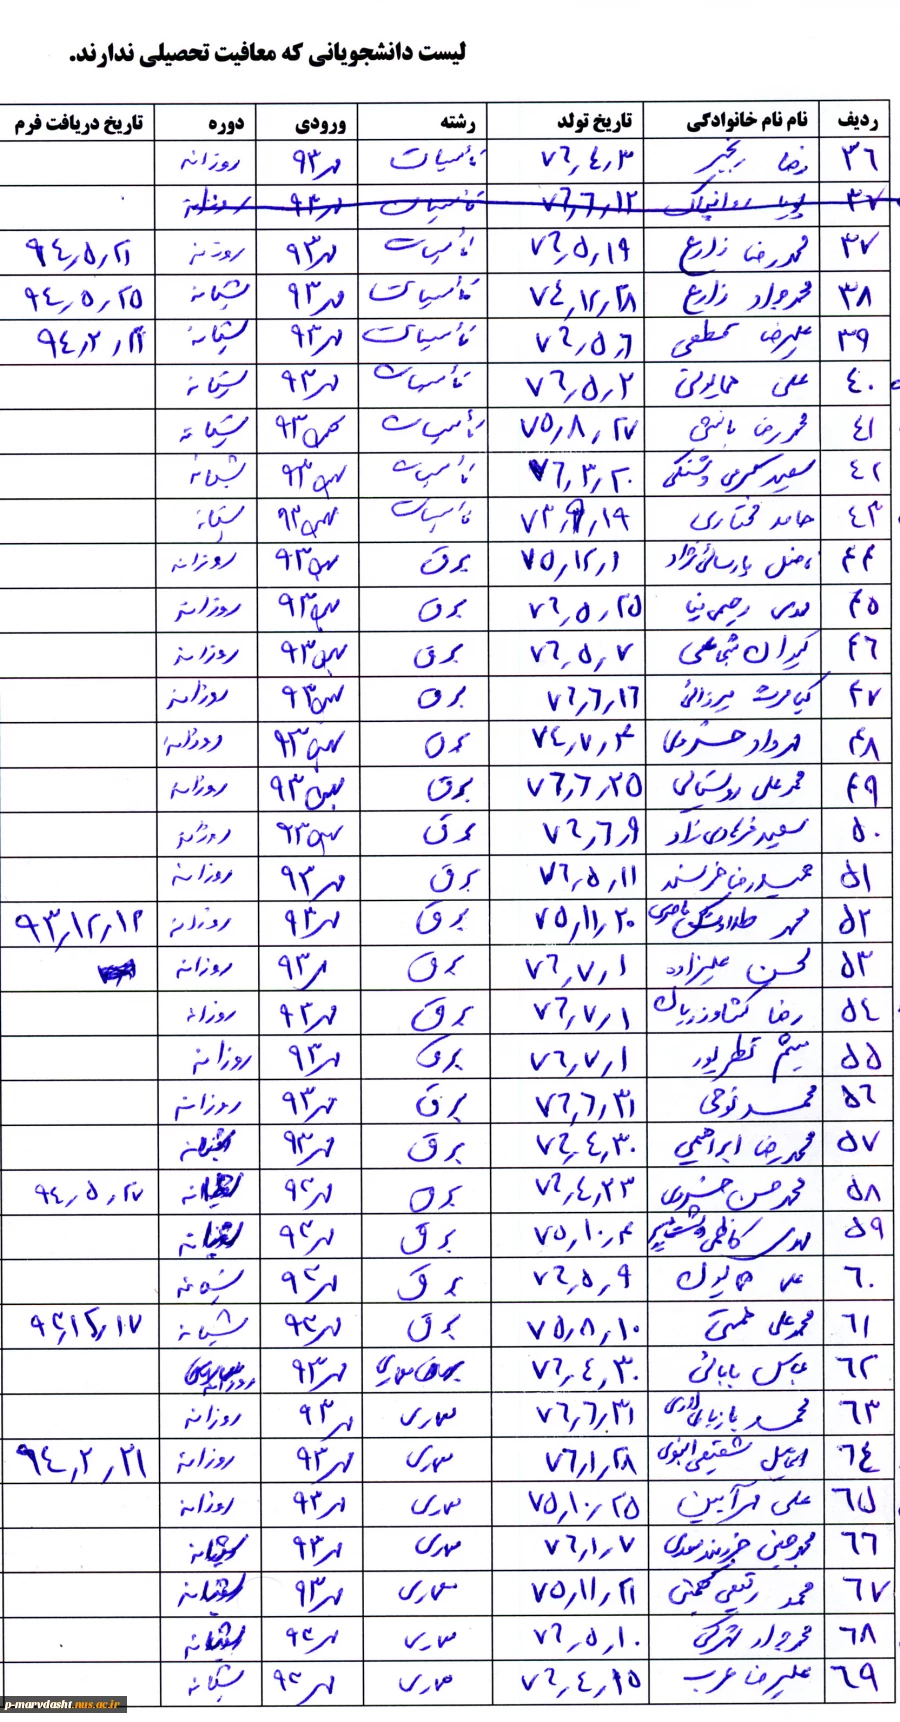 لیست دانشجویانی که معافیت تحصیلی ندارند.
ردیف نام نام خانوادگی تاریخ تولد رشته ورودی دوره تاریخ دریافت فرم
۳۶ رضا رنجبر ۷۶٫۴٫۳ تأسیسات مهر۹۳ روزانه
۳۷ پویا ۷۶٫۶٫۱۲ تأسیسات مهر۹۳ روزانه
۳۷ محمدرضا زارع ۷۶٫۵٫۱۹ تأسیسات مهر۹۳ روزانه ۹۴٫۵٫۲۱
۳۸ محمدجواد زارع ۷۴٫۱۲٫۲۸ تأسیسات مهر۹۳ شبانه ۹۴٫۵٫۲۵
۳۹ علیرضا ۷۶٫۵٫۶ تأسیسات مهر۹۳ شبانه
۴۰ علی همایونی ۷۶٫۵٫۲ تأسیسات مهر۹۳ شبانه
۴۱ محمدرضا ۷۵٫۸٫۲۷ تأسیسات بهمن۹۳ شبانه
۴۲ سعید کرمی دشتکی ۷۶٫۳٫۲۰ تأسیسات بهمن۹۳ شبانه
۴۳ حامد مختاری تأسیسات بهمن۹۳ شبانه
۴۴ پارسائی نژاد ۷۵٫۱۲٫۱ برق بهمن۹۳ روزانه
۴۵ مهدی رحیمی نیا ۷۶٫۵٫۲۵ برق بهمن۹۳ روزانه
۴۶ شجاعی ۷۶٫۵٫۷ برق بهمن۹۳ روزانه
۴۷ کیامرث میرزائی ۷۶٫۶٫۱۶ برق بهمن۹۳ روزانه
۴۸ مهرداد خسروی ۷۴٫۷٫۴ برق بهمن۹۳ روزانه
۴۹ محمدعلی روستائی ۷۶٫۶٫۲۵ برق بهمن۹۳ روزانه
۵۰ سعید فرهادی نژاد ۷۶٫۶٫۹ برق بهمن۹۳ روزانه
۵۱ حمیدرضا خرسند ۷۶٫۵٫۱۱ برق مهر۹۳ روزانه
۵۲ محمد ۷۵٫۱۱٫۲۰ برق مهر۹۳ روزانه ۹۳٫۱۲٫۱۲
۵۳ محسن علیزاده ۷۶٫۷٫۱ برق مهر۹۳ روزانه
۵۴ رضا کشاورزیان ۷۶٫۷٫۱ برق مهر۹۳ روزانه
۵۵ میثم قطرپور ۷۶٫۷٫۱ برق مهر۹۳ روزانه
۵۶ محمد نوحی ۷۶٫۶٫۳۱ برق مهر۹۳ روزانه
۵۷ محمدرضا ابراهیمی ۷۶٫۴٫۳۰ برق مهر۹۳ شبانه
۵۸ محمدحسن خسروی ۷۶٫۴٫۲۳ برق مهر۹۳ شبانه ۹۴٫۵٫۲۷
۵۹ مهدی کاظمی ۷۵٫۱۰٫۴ برق مهر۹۳ شبانه
۶۰ علی همایون ۷۶٫۵٫۹ برق مهر۹۳ شبانه
۶۱ محمدعلی همتی ۷۵٫۸٫۱۰ برق مهر۹۳ شبانه ۹۳٫۱۲٫۱۷
۶۲ عباس بابائی ۷۶٫۴٫۳۰ معماری مهر۹۳ روزانه
۶۳ محمد بازیاری لاری ۷۶٫۶٫۳۱ معماری مهر۹۳ روزانه
۶۴ اسماعیل شفیعی ۷۶٫۱٫۲۸ معماری مهر۹۳ روزانه ۹۴٫۲٫۲۱
۶۵ علی مهرآیین ۷۵٫۱۰٫۲۵ معماری مهر۹۳ روزانه
۶۶ ۷۶٫۱٫۷ معماری مهر۹۳ شبانه
۶۷ محمد رفیعی ۷۵٫۱۱٫۲۱ معماری مهر۹۳ شبانه
۶۸ محمدجواد ترکی ۷۶٫۵٫۱۰ معماری مهر۹۳ شبانه
۶۹ علیرضا عرب ۷۶٫۴٫۱۵ معماری مهر۹۳ شبانه
p-marvdasht.nus.ac.ir